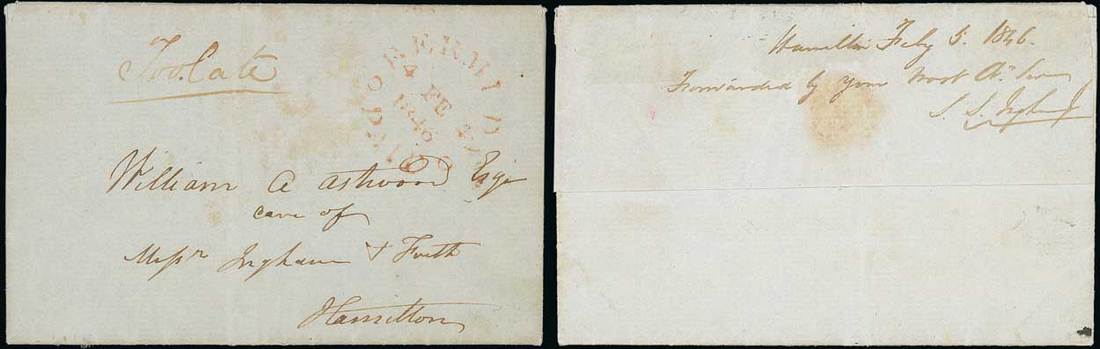 Too Late
BERMUDA
4 FE
1846
William A Astwood Esqr
care of
Messrs Ingham & Frith
Hamilton
Hamilton Feby 5. 1846.
Forwarded by your most
S. S. Ingham